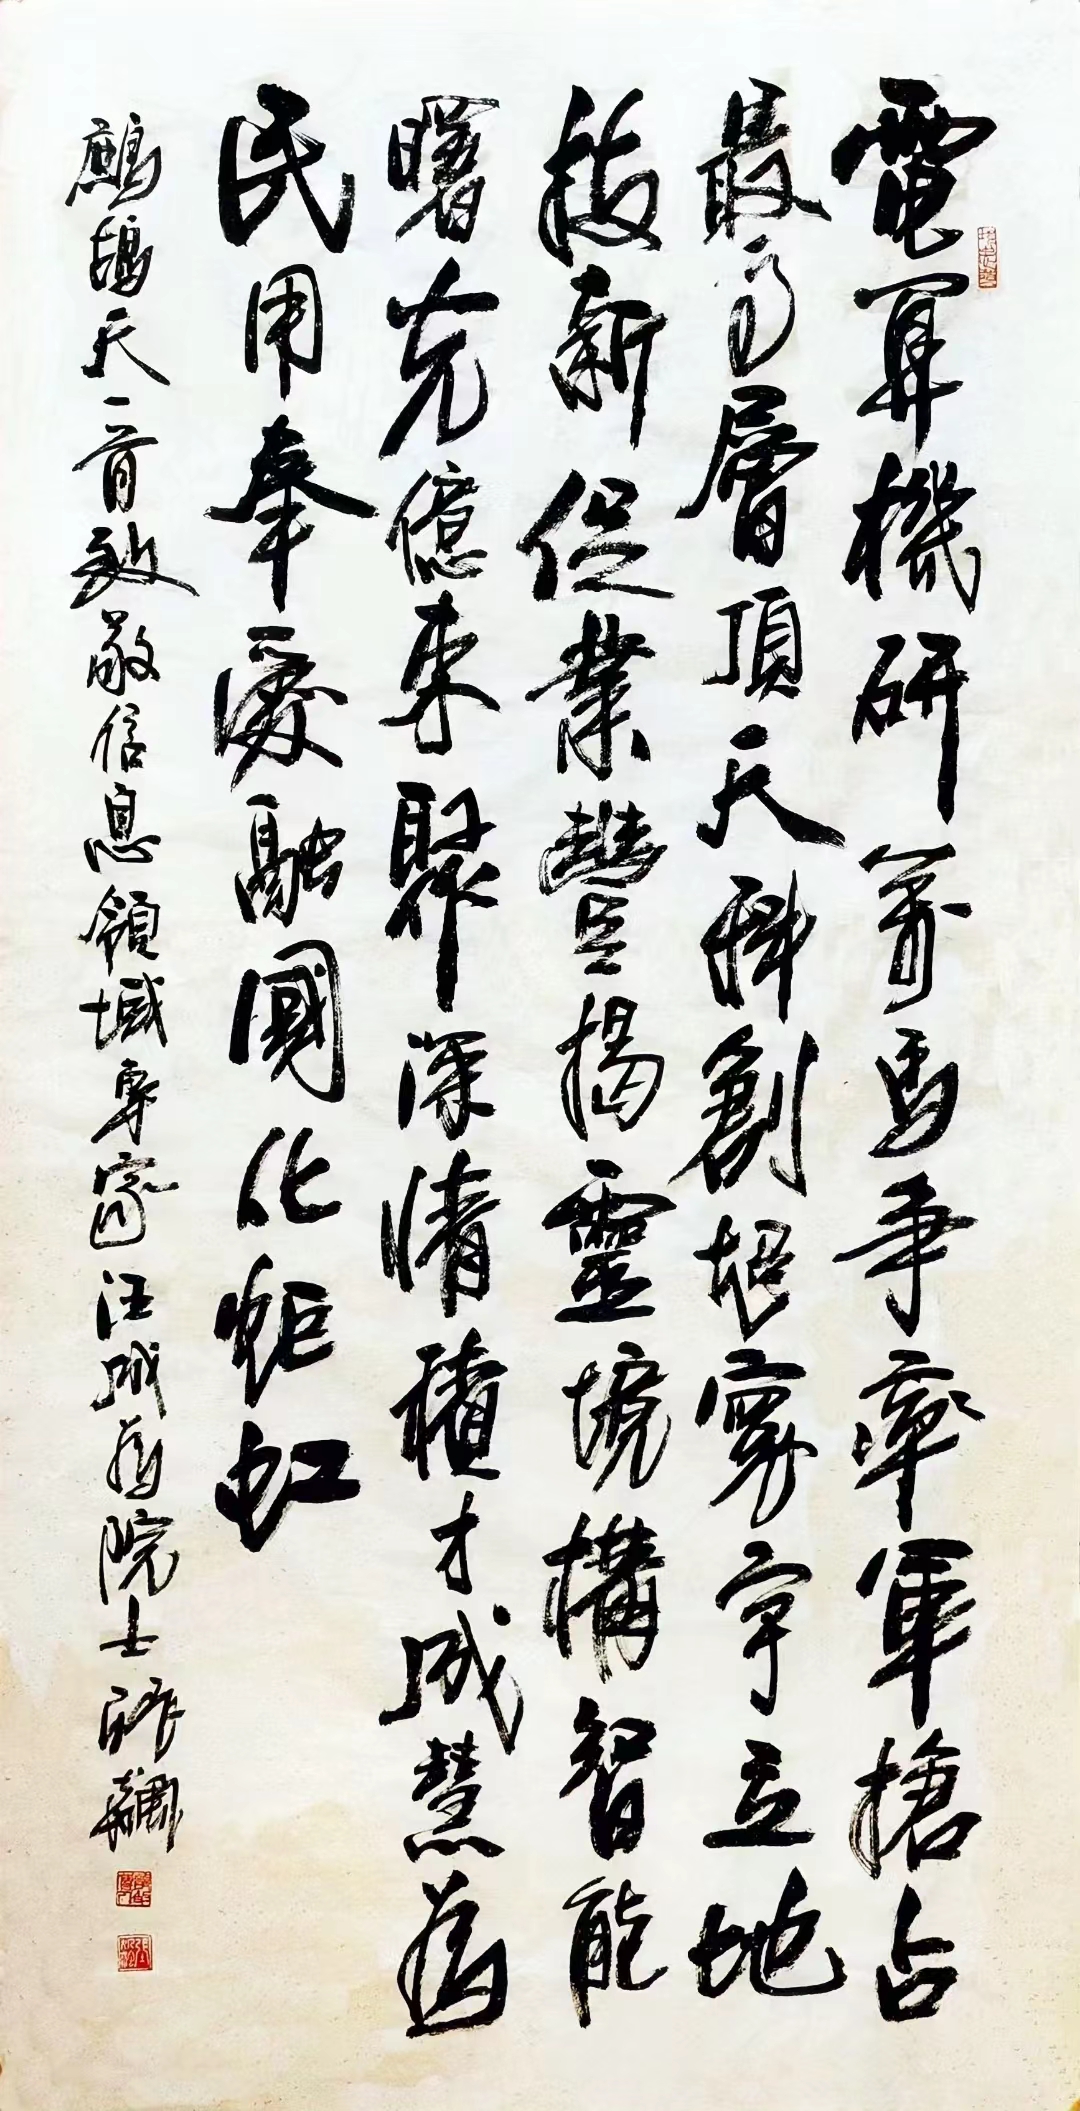 電算機研萬馬爭率軍搶占
最高層頂天科創超寰宇立地
技新促業豐揭靈境構智能
曙光億束聚深情積才成慧為
民用奉愛融國化彩虹
鷓鴣天一首致敬信息領域專家汪成為院士